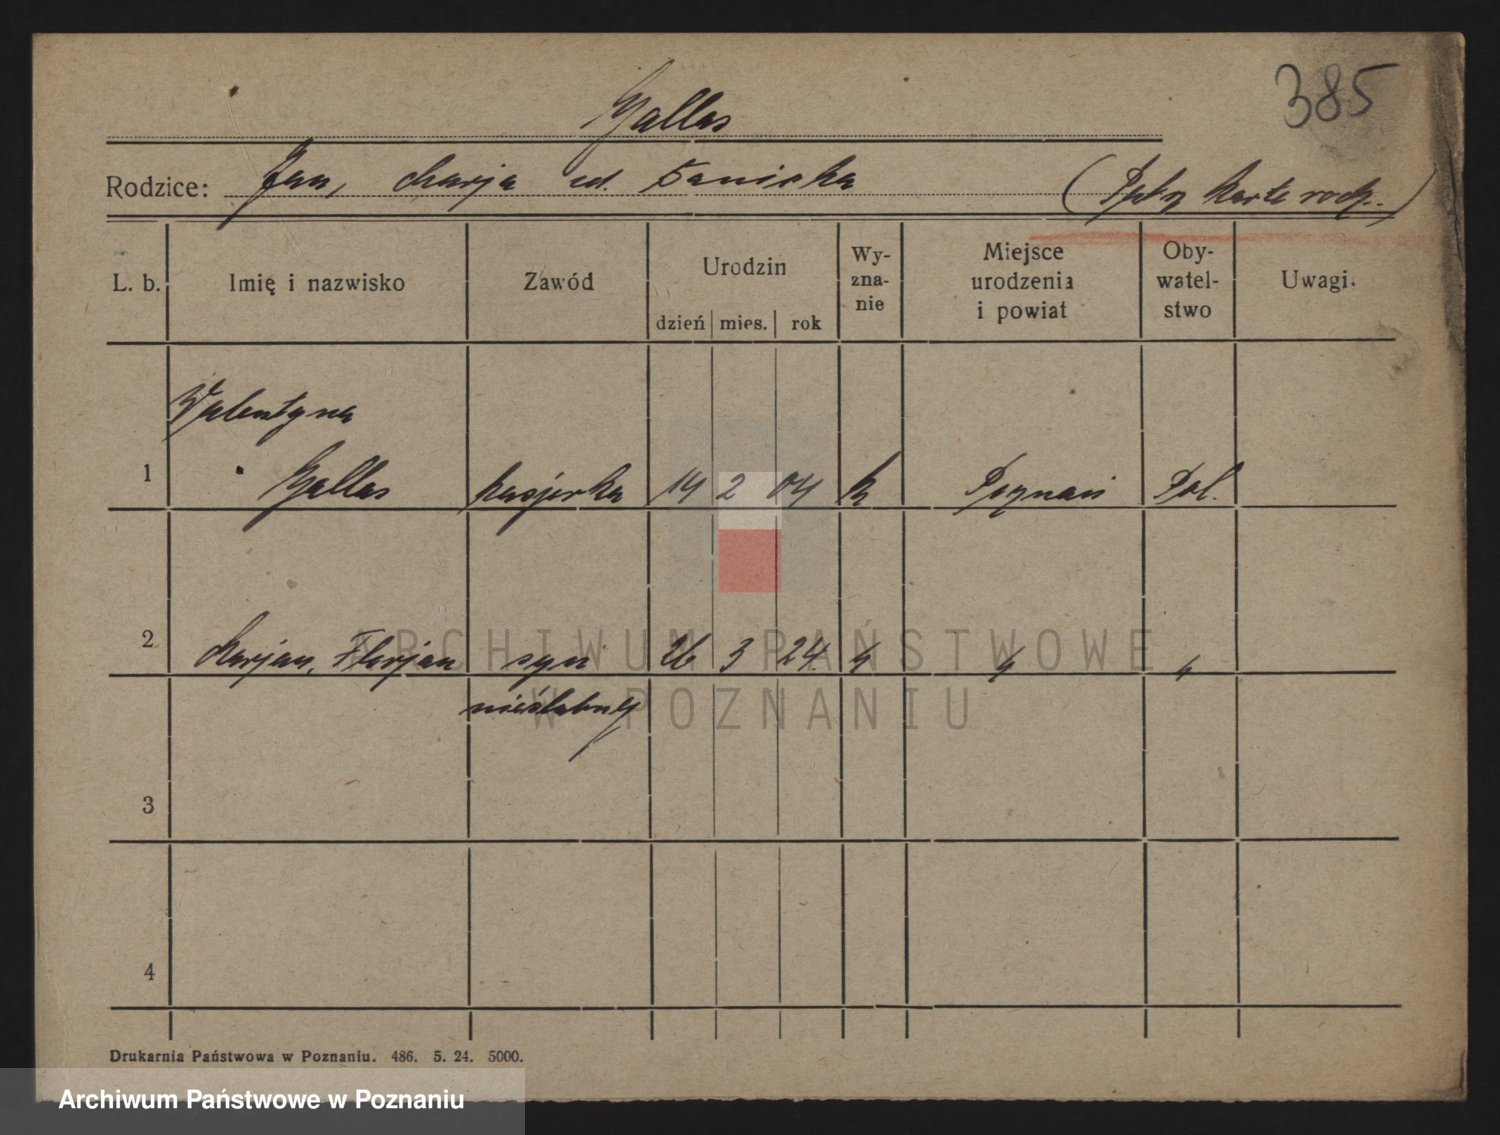 385
Gallas
Rodzice: Jan, Marja ud. Banicka
karta rodz.
L. b. Imię i nazwisko Zawód Urodzin dzień mies. rok Wy-zna-nie Miejsce urodzenia i powiat Oby-watel-stwo Uwagi.
Walentyna
1 Gallas kasjerka 14 2 04 k Poznań Pol.
2 Marjan, Florjan syn 26 3 24 " " "
nieślubny
3
4
Drukarnia Państwowa w Poznaniu. 486. 5. 24. 5000.
ARCHIWUM PAŃSTWOWE
W POZNANIU
Archiwum Państwowe w Poznaniu